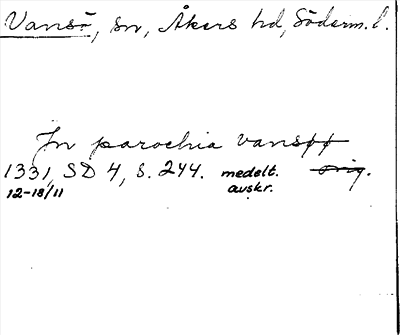 Vansö, sn, Åkers hd, Söderm. l.
In parochia vansøø
1331, SD 4, s. 244. medelt. avskr. orig.
12-18/11